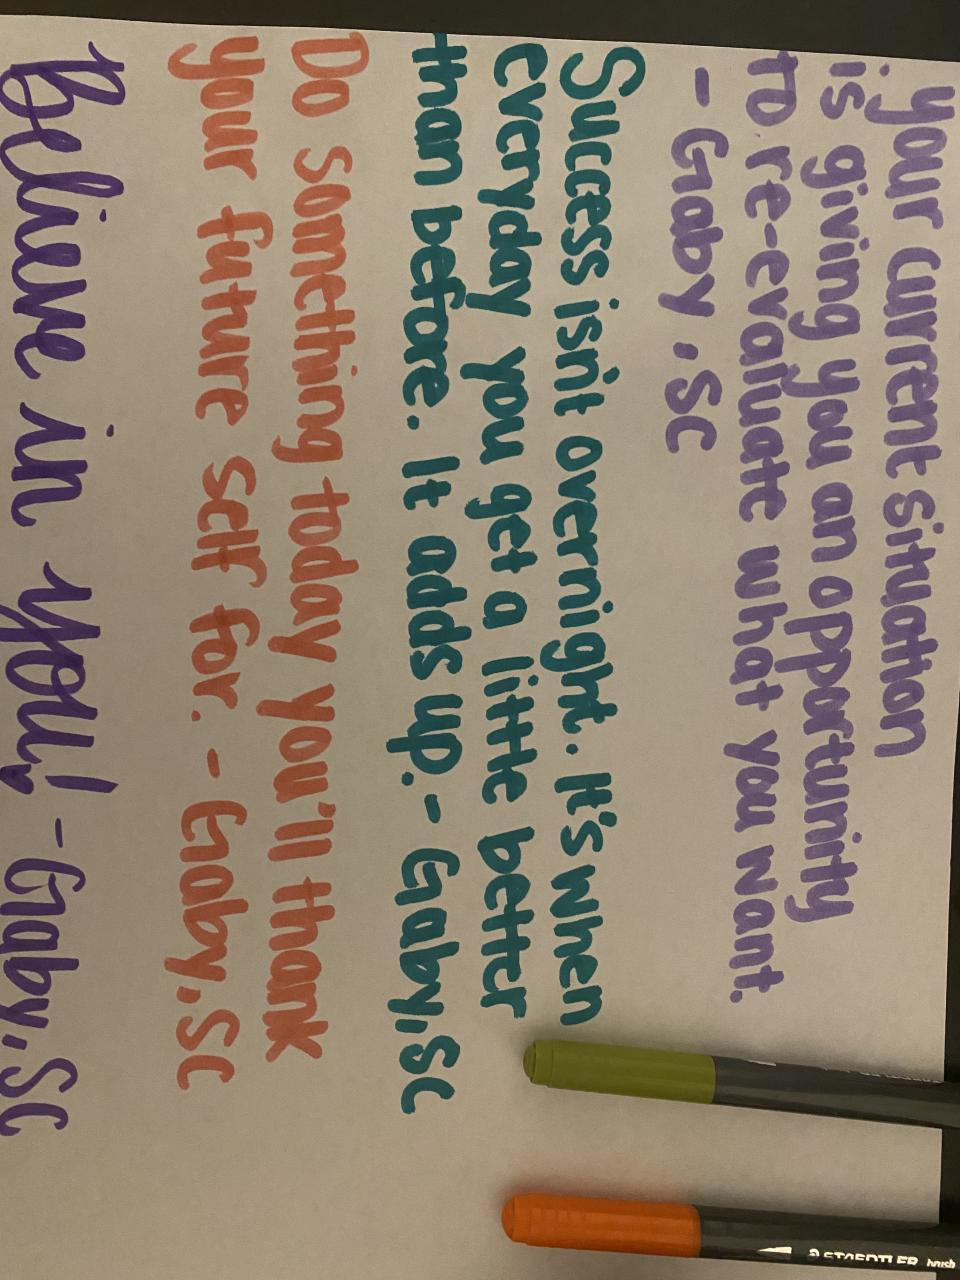 . your current situation
is giving you an opportunity
to re-evaluate what you want.
- Gaby .SC
Success isn't overnight. It's when
everyday you get a little better
than before. It adds up. - Gaby, SC
Do something today you'll thank
your future self for. - Gaby, SC
Believe in you! - Gaby, SC
STAEDTLER brush